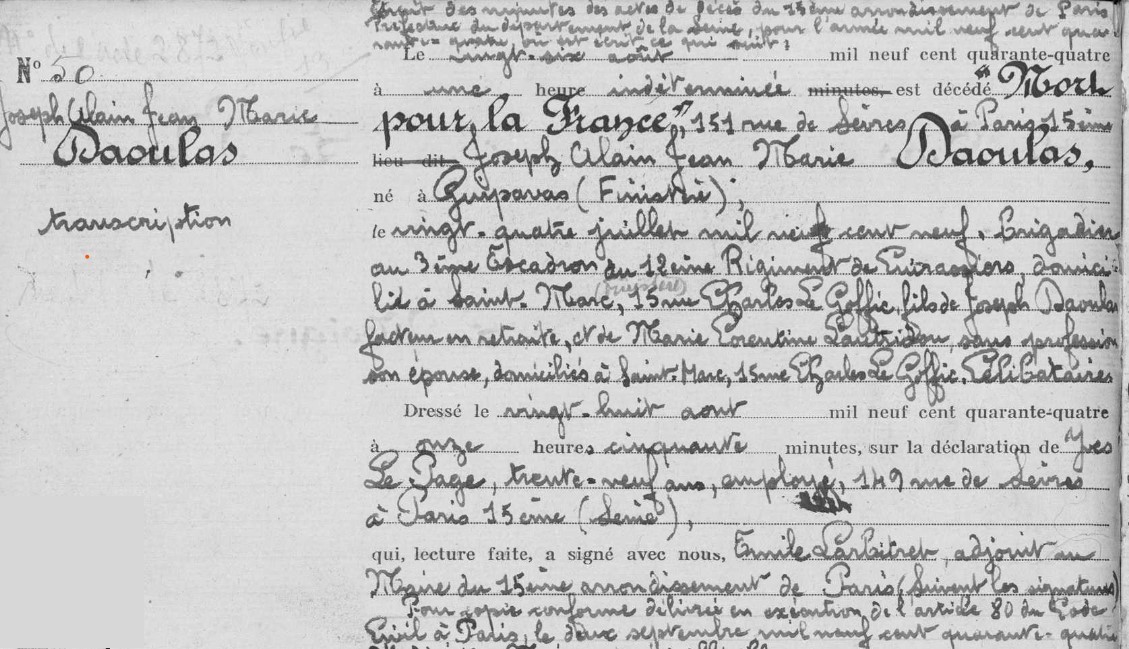 Extrait des minutes des actes de décès du 15ème arrondissement de Paris
Préfecture du département de la Seine, pour l'année mil neuf cent qua-
rante-quatre, où est écrit ce qui suit :
Le vingt-six août mil neuf cent quarante-quatre
N° 50
à une heure indéterminée minutes, est décédé "Mort
Joseph Alain Jean Marie
pour la France", 151 rue de Sèvres à Paris 15ème
Daoulas
lieu dit Joseph Alain Jean Marie Daoulas,
né à Guipavas (Finistère) ;
transcription
le vingt-quatre juillet mil neuf cent neuf, Brigadier
au 3ème Escadron du 12ème Régiment de Cuirassiers, domici-
lié à Saint-Marc, (Finistère) 15 rue Charles Le Goffic, fils de Joseph Daoulas
facteur en retraite, et de Marie Corentine Lautridou, sans profession
son épouse, domiciliés à Saint-Marc, 15 rue Charles Le Goffic. Célibataire
Dressé le vingt-huit août mil neuf cent quarante-quatre
à onze heures cinquante minutes, sur la déclaration de Yves
Le Page, trente-neuf ans, employé, 149 rue de Sèvres
à Paris 15ème (Seine),
qui, lecture faite, a signé avec nous, Emile Larbitret, adjoint au
Maire du 15ème arrondissement de Paris (Suivent les signatures)
Pour copie conforme délivrée en exécution de l'article 80 du Code
Civil à Paris, le deux septembre mil neuf cent quarante-quatre